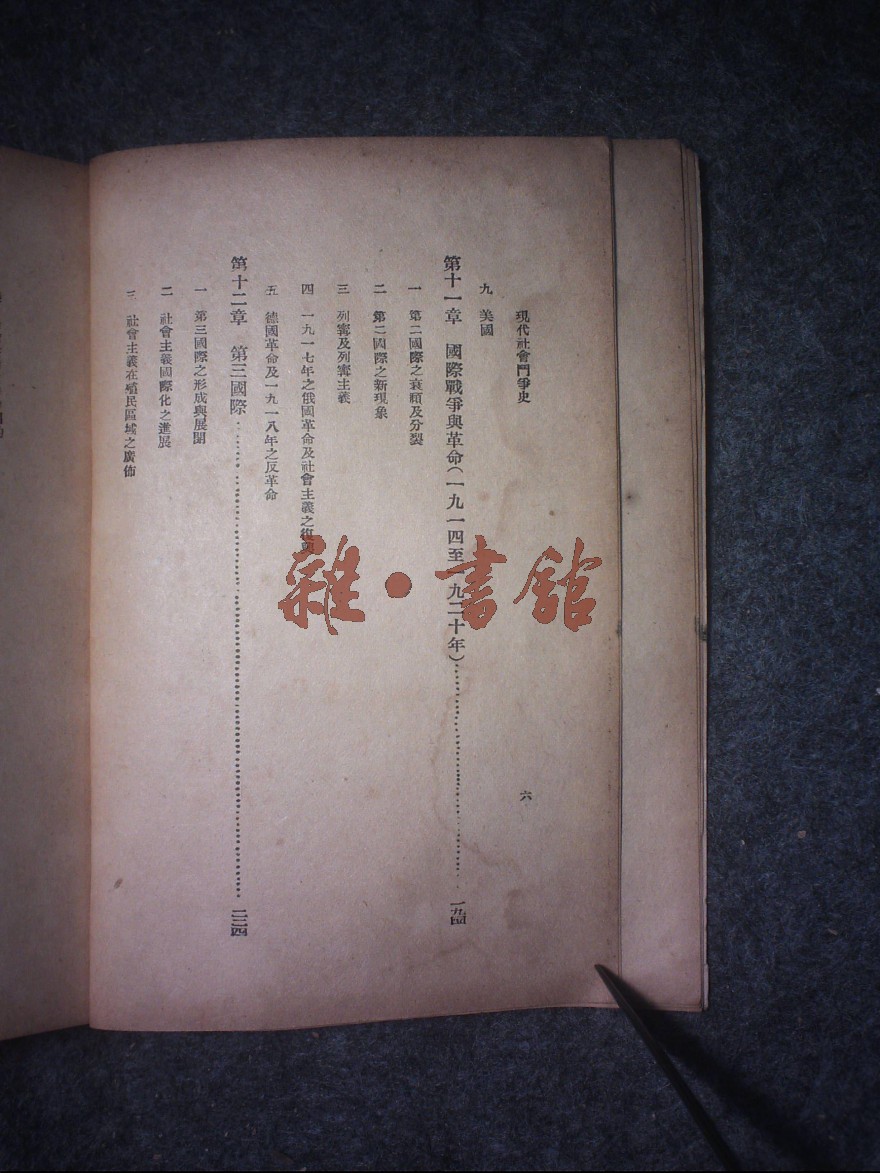 現代社會鬥爭史
六
九 美國
第十一章 國際戰爭與革命(一九一四至一九二十年)……一九四
一 第二國際之衰頹及分裂
二 第二國際之新現象
三 列寗及列寗主義
四 一九一七年之俄國革命及社會主義之復興
五 德國革命及一九一八年之反革命
第十二章 第三國際……二三四
一 第三國際之形成與展開
二 社會主義國際化之進展
三 社會主義在殖民區域之廣佈
雜·書館